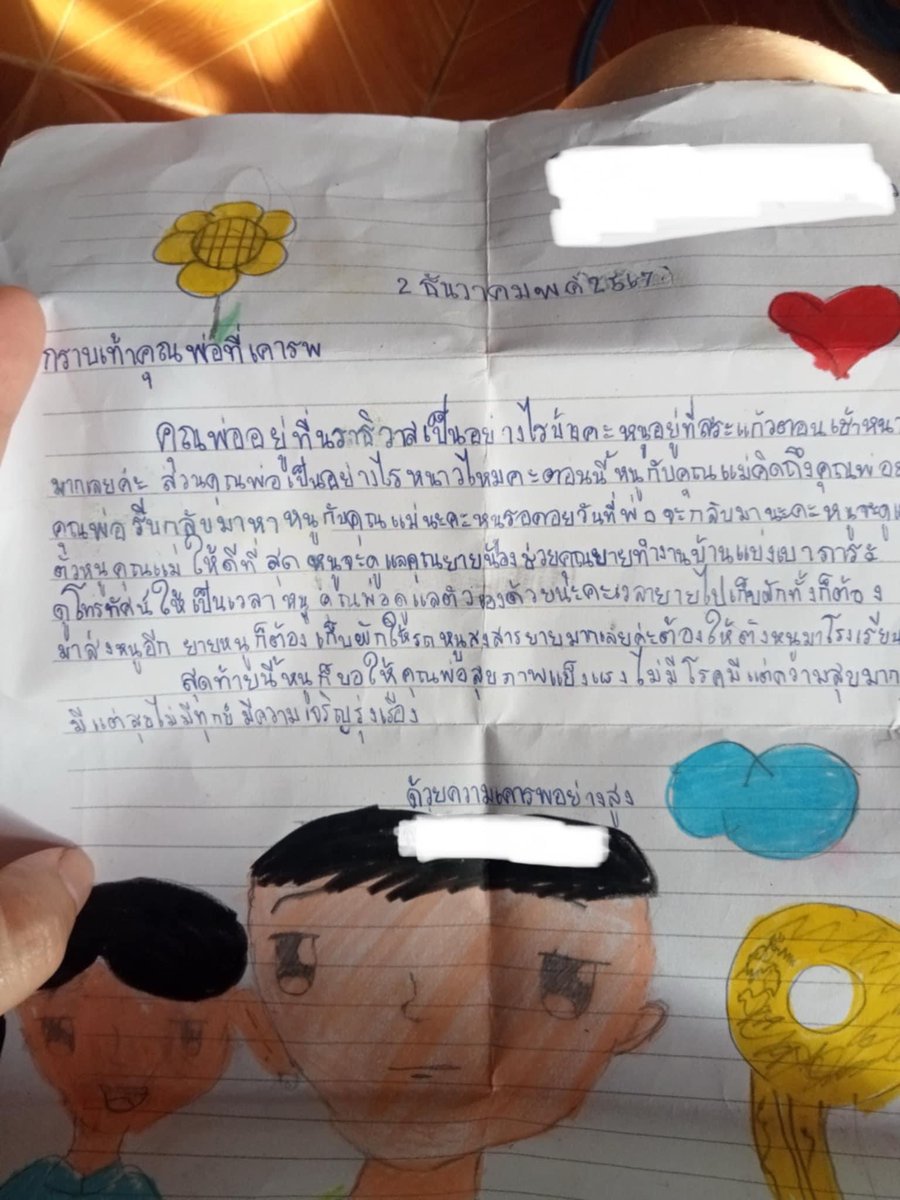 2 ธันวาคม พ ศ 2567
กราบเท้าคุณพ่อที่เคารพ
คุณพ่ออยู่ที่นราธิวาสเป็นอย่างไรบ้างคะ หนูอยู่ที่สระแก้วตอนเช้าหนา
มากเลยค่ะ ส่วนคุณพ่อเป็นอย่างไร หนาวไหมคะ ตอนนี้ หนูกับคุณแม่คิดถึงคุณพ่อ
คุณพ่อรีบกลับมาหา หนูกับคุณแม่นะคะ หนูรอคอยวันที่พ่อจะกลับมานะคะ หนูจะดูแ
ตัวหนู คุณแม่ ให้ดีที่สุด หนูจะดูแลคุณยาย น้อง ช่วยคุณยายทำงานบ้านแบ่งเบาภาระ
ดูโทรทัศน์ให้เป็นเวลา หนู คุณพ่อดูแลตัวเองด้วยนะคะ เวลายายไปเก็บผักทั้งก็ต้อง
มาส่งหนูอีก ยายหนูก็ต้อง เก็บผักให้รถ หนูสงสารยายมากเลยค่ะ ต้องให้ตังหนูมาโรงเรียน
สุดท้ายนี้หนูก็ขอให้คุณพ่อสุขภาพแข็งแรง ไม่มีโรคมีแต่ความสุขมาก
มีแต่สุขไม่มีทุกข์ มีความเจริญรุ่งเรือง
ด้วยความเคารพอย่างสูง